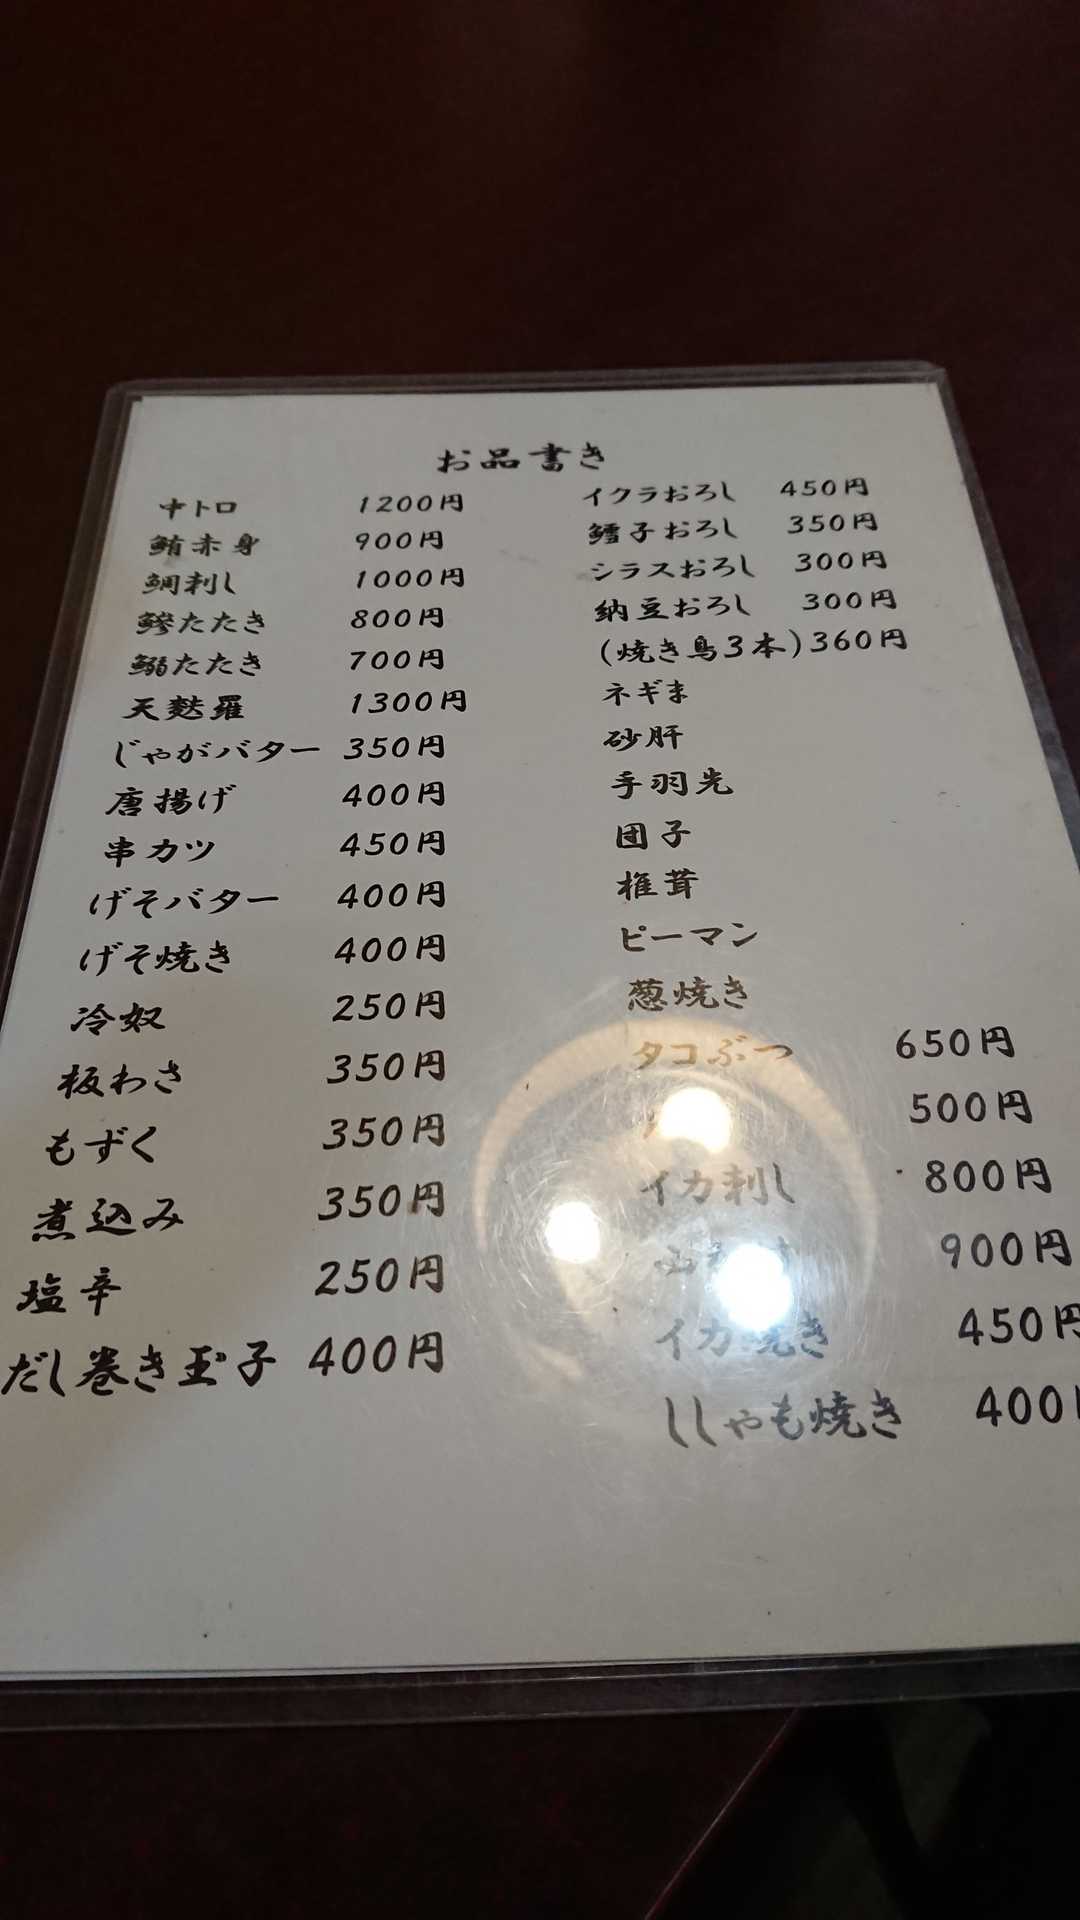 お品書き
中トロ 1200円
鮪赤身 900円
鯛刺し 1000円
鯵たたき 800円
鰯たたき 700円
天麩羅 1300円
じゃがバター 350円
唐揚げ 400円
串カツ 450円
げそバター 400円
げそ焼き 400円
冷奴 250円
板わさ 350円
もずく 350円
煮込み 350円
塩辛 250円
だし巻き玉子 400円
イクラおろし 450円
鱈子おろし 350円
シラスおろし 300円
納豆おろし 300円
(焼き鳥3本)360円
ネギま
砂肝
手羽先
団子
椎茸
ピーマン
葱焼き
タコぶつ 650円
500円
イカ刺し 800円
900円
イカ焼き 450円
ししゃも焼き 400円